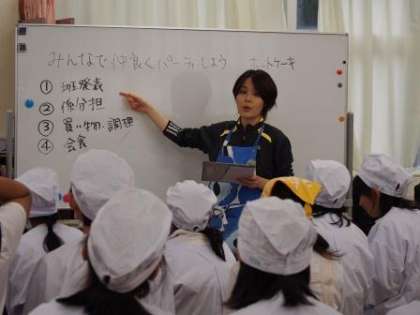 みんなで仲良くパーティしよう ホットケーキ
① 班発表
② 係分担
③ 買い物・調理
④ 会食